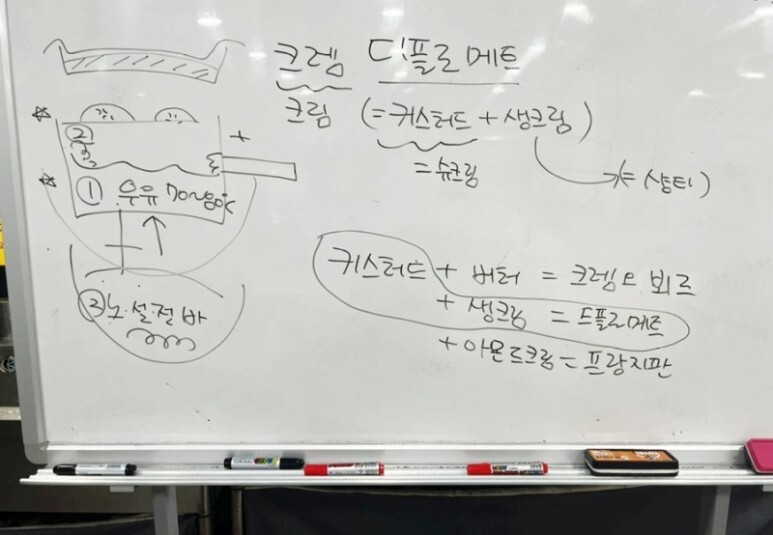 크렘 디플로메트
크림 (=커스터드 + 생크림)
=슈크림
(=샹티)
커스터드 + 버터 = 크렘므 뵈르
+ 생크림 = 드플로메트
+ 아몬드크림 = 프랑지판
②
+
① 우유 70~80℃
③ 노.설.전.바